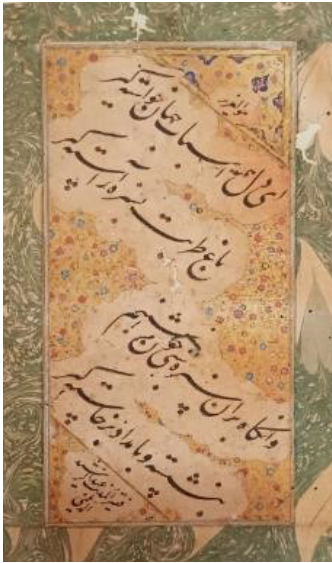 ای دل همه اسباب جهان خواسته گیر
باغ طربت بسبزه آراسته گیر
وانگاه بران سبزه شبی چون شبنم
بنشسته و بامداد برخاسته گیر